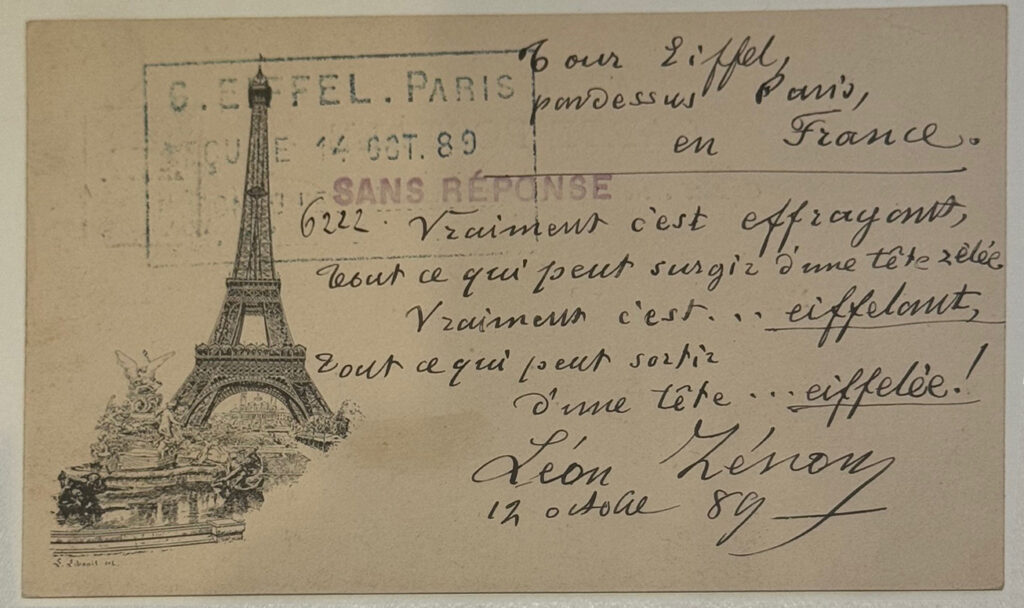 Tour Eiffel,
pardessus Paris,
en France.
G. EIFFEL. PARIS
REÇU LE 14 OCT. 89
SANS RÉPONSE
6222. Vraiment c'est effrayant,
Tout ce qui peut surgir d'une tête zélée
Vraiment c'est... eiffelant,
Tout ce qui peut sortir
d'une tête ... eiffelée!
Léon Zénon
12 octobre 89